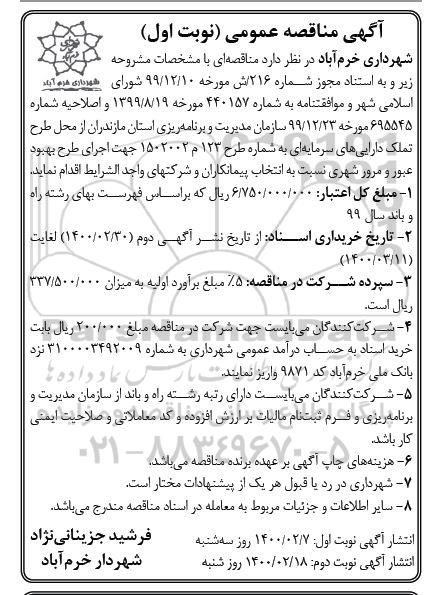 آگهی مناقصه عمومی (نوبت اول)
شهرداری خرم آباد
شهرداری خرم‌آباد در نظر دارد مناقصه‌ای با مشخصات مشروحه
زیر و به استناد مجوز شماره ۲۱۶/ش مورخه ۹۹/۱۲/۱۰ شورای
اسلامی شهر و موافقتنامه به شماره ۴۴۰۱۵۷ مورخه ۱۳۹۹/۸/۱۹ و اصلاحیه شماره
۶۹۵۵۴۵ مورخه ۹۹/۱۲/۲۳ سازمان مدیریت و برنامه‌ریزی استان مازندران از محل طرح
تملک دارایی‌های سرمایه‌ای به شماره طرح ۱۲۳ م ۱۵۰۲۰۰۲ جهت اجرای طرح بهبود
عبور و مرور شهری نسبت به انتخاب پیمانکاران و شرکتهای واجد الشرایط اقدام نماید.
۱- مبلغ کل اعتبار: ۶/۷۵۰/۰۰۰/۰۰۰ ریال که براساس فهرست بهای رشته راه
و باند سال ۹۹
۲- تاریخ خریداری اسناد: از تاریخ نشر آگهی دوم (۱۴۰۰/۰۲/۳۰) لغایت
(۱۴۰۰/۰۳/۱۱)
۳- سپرده شرکت در مناقصه: ۵٪ مبلغ برآورد اولیه به میزان ۳۳۷/۵۰۰/۰۰۰
ریال است.
۴- شرکت‌کنندگان می‌بایست جهت شرکت در مناقصه مبلغ ۲۰۰/۰۰۰ ریال بابت
خرید اسناد به حساب درآمد عمومی شهرداری به شماره ۳۱۰۰۰۰۳۴۹۲۰۰۹ نزد
بانک ملی خرم‌آباد کد ۹۸۷۱ واریز نمایند.
۵- شرکت‌کنندگان می‌بایست دارای رتبه رشته راه و باند از سازمان مدیریت و
برنامه‌ریزی و فرم ثبت‌نام مالیات بر ارزش افزوده و کد معاملاتی و صلاحیت ایمنی
کار باشد.
۰۲۱-۸۸۳۴۹۶۷۰-۵
۶- هزینه‌های چاپ آگهی بر عهده برنده مناقصه می‌باشد.
۷- شهرداری در رد یا قبول هر یک از پیشنهادات مختار است.
۸- سایر اطلاعات و جزئیات مربوط به معامله در اسناد مناقصه مندرج می‌باشد.
انتشار آگهی نوبت اول: ۱۴۰۰/۰۲/۷ روز سه‌شنبه
انتشار آگهی نوبت دوم: ۱۴۰۰/۰۲/۱۸ روز شنبه
فرشید جزینانی‌نژاد
شهردار خرم‌آباد